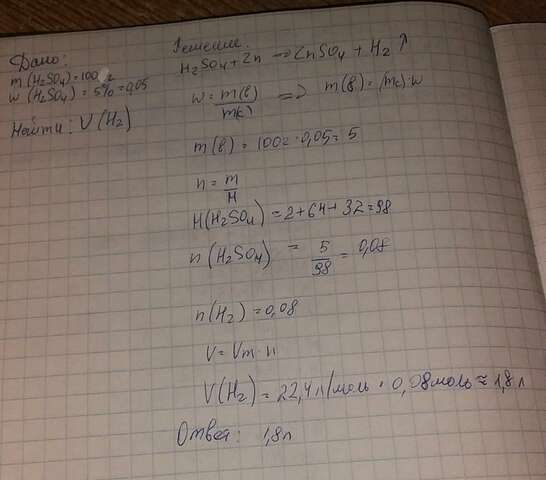 Дано:
m (H₂SO₄) = 100 г
w (H₂SO₄) = 5% = 0,05
Найти: V(H₂)
Решение.
H₂SO₄ + Zn → ZnSO₄ + H₂ ↑
w = m(в) / m(с) => m(в) = m(с) · w
m(в) = 100г · 0,05 = 5
n = m / M
M(H₂SO₄) = 2 + 64 + 32 = 98
n (H₂SO₄) = 5 / 98 = 0,08
n(H₂) = 0,08
V = Vm · n
V(H₂) = 22,4 л/моль · 0,08 моль ≈ 1,8 л
Ответ: 1,8л